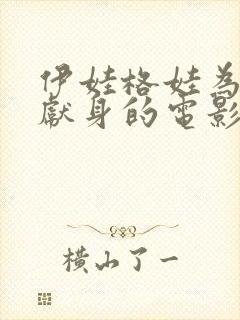 伊娃格娃為
獻身的電影
橫山了一